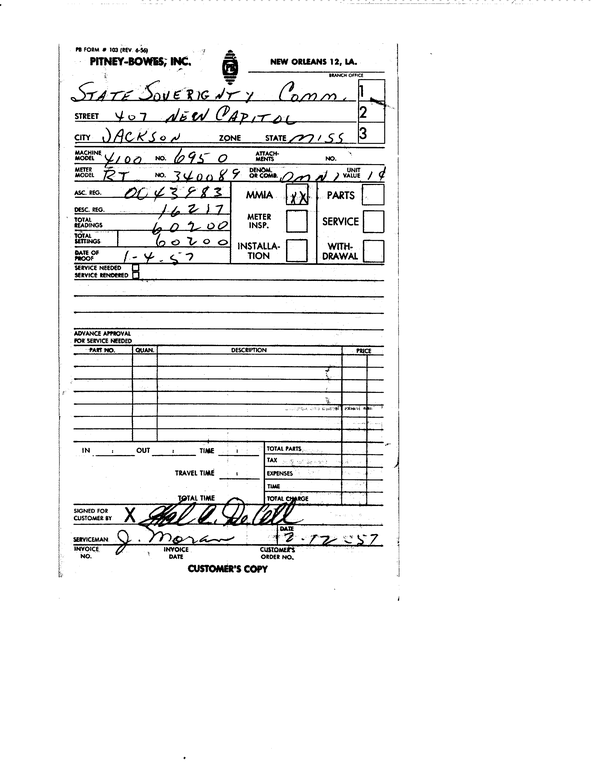 PB FORM # 103 (REV. 6-56)
PITNEY-BOWES, INC. PB NEW ORLEANS 12, LA.
BRANCH OFFICE
STATE SOVERIGNTY Comm. 1
STREET 407 NEW CAPITOL 2
CITY JACKSON ZONE STATE MISS 3
MACHINE MODEL 4100 NO. 6950 ATTACH-MENTS NO.
METER MODEL RT NO. 340089 DENOM. OR COMB. Omni UNIT VALUE 1¢
ASC. REG. 0043983 MMIA XX PARTS
DESC. REG. 16217
TOTAL READINGS 60200 METER INSP. SERVICE
TOTAL SETTINGS 60200 INSTALLA-TION WITH-DRAWAL
DATE OF PROOF 1-4-57
SERVICE NEEDED
SERVICE RENDERED
ADVANCE APPROVAL
FOR SERVICE NEEDED
PART NO. QUAN. DESCRIPTION PRICE
IN : OUT : TIME : TOTAL PARTS
TAX
TRAVEL TIME : EXPENSES
TIME
TOTAL TIME TOTAL CHARGE
SIGNED FOR CUSTOMER BY X Hal C. DeCell
SERVICEMAN J. Moran DATE 2-12-57
INVOICE NO. INVOICE DATE CUSTOMER'S ORDER NO.
CUSTOMER'S COPY